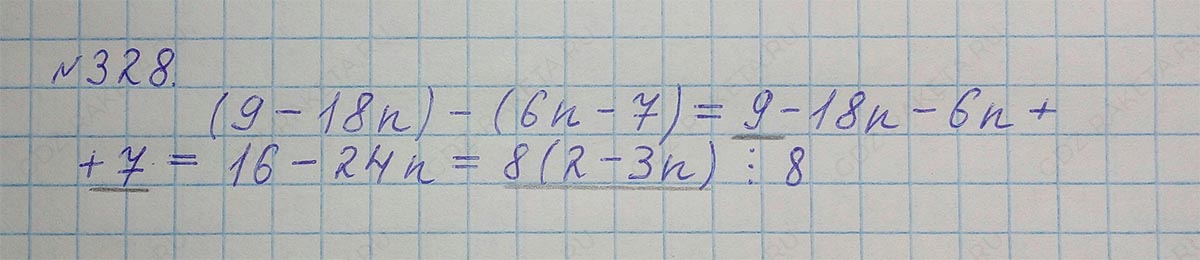 №328.
(9 - 18n) - (6n - 7) = 9 - 18n - 6n +
+ 7 = 16 - 24n = 8(2 - 3n) ⋮ 8